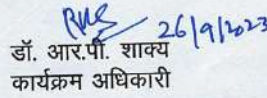 26/9/2023
डॉ. आर.पी. शाक्य
कार्यक्रम अधिकारी